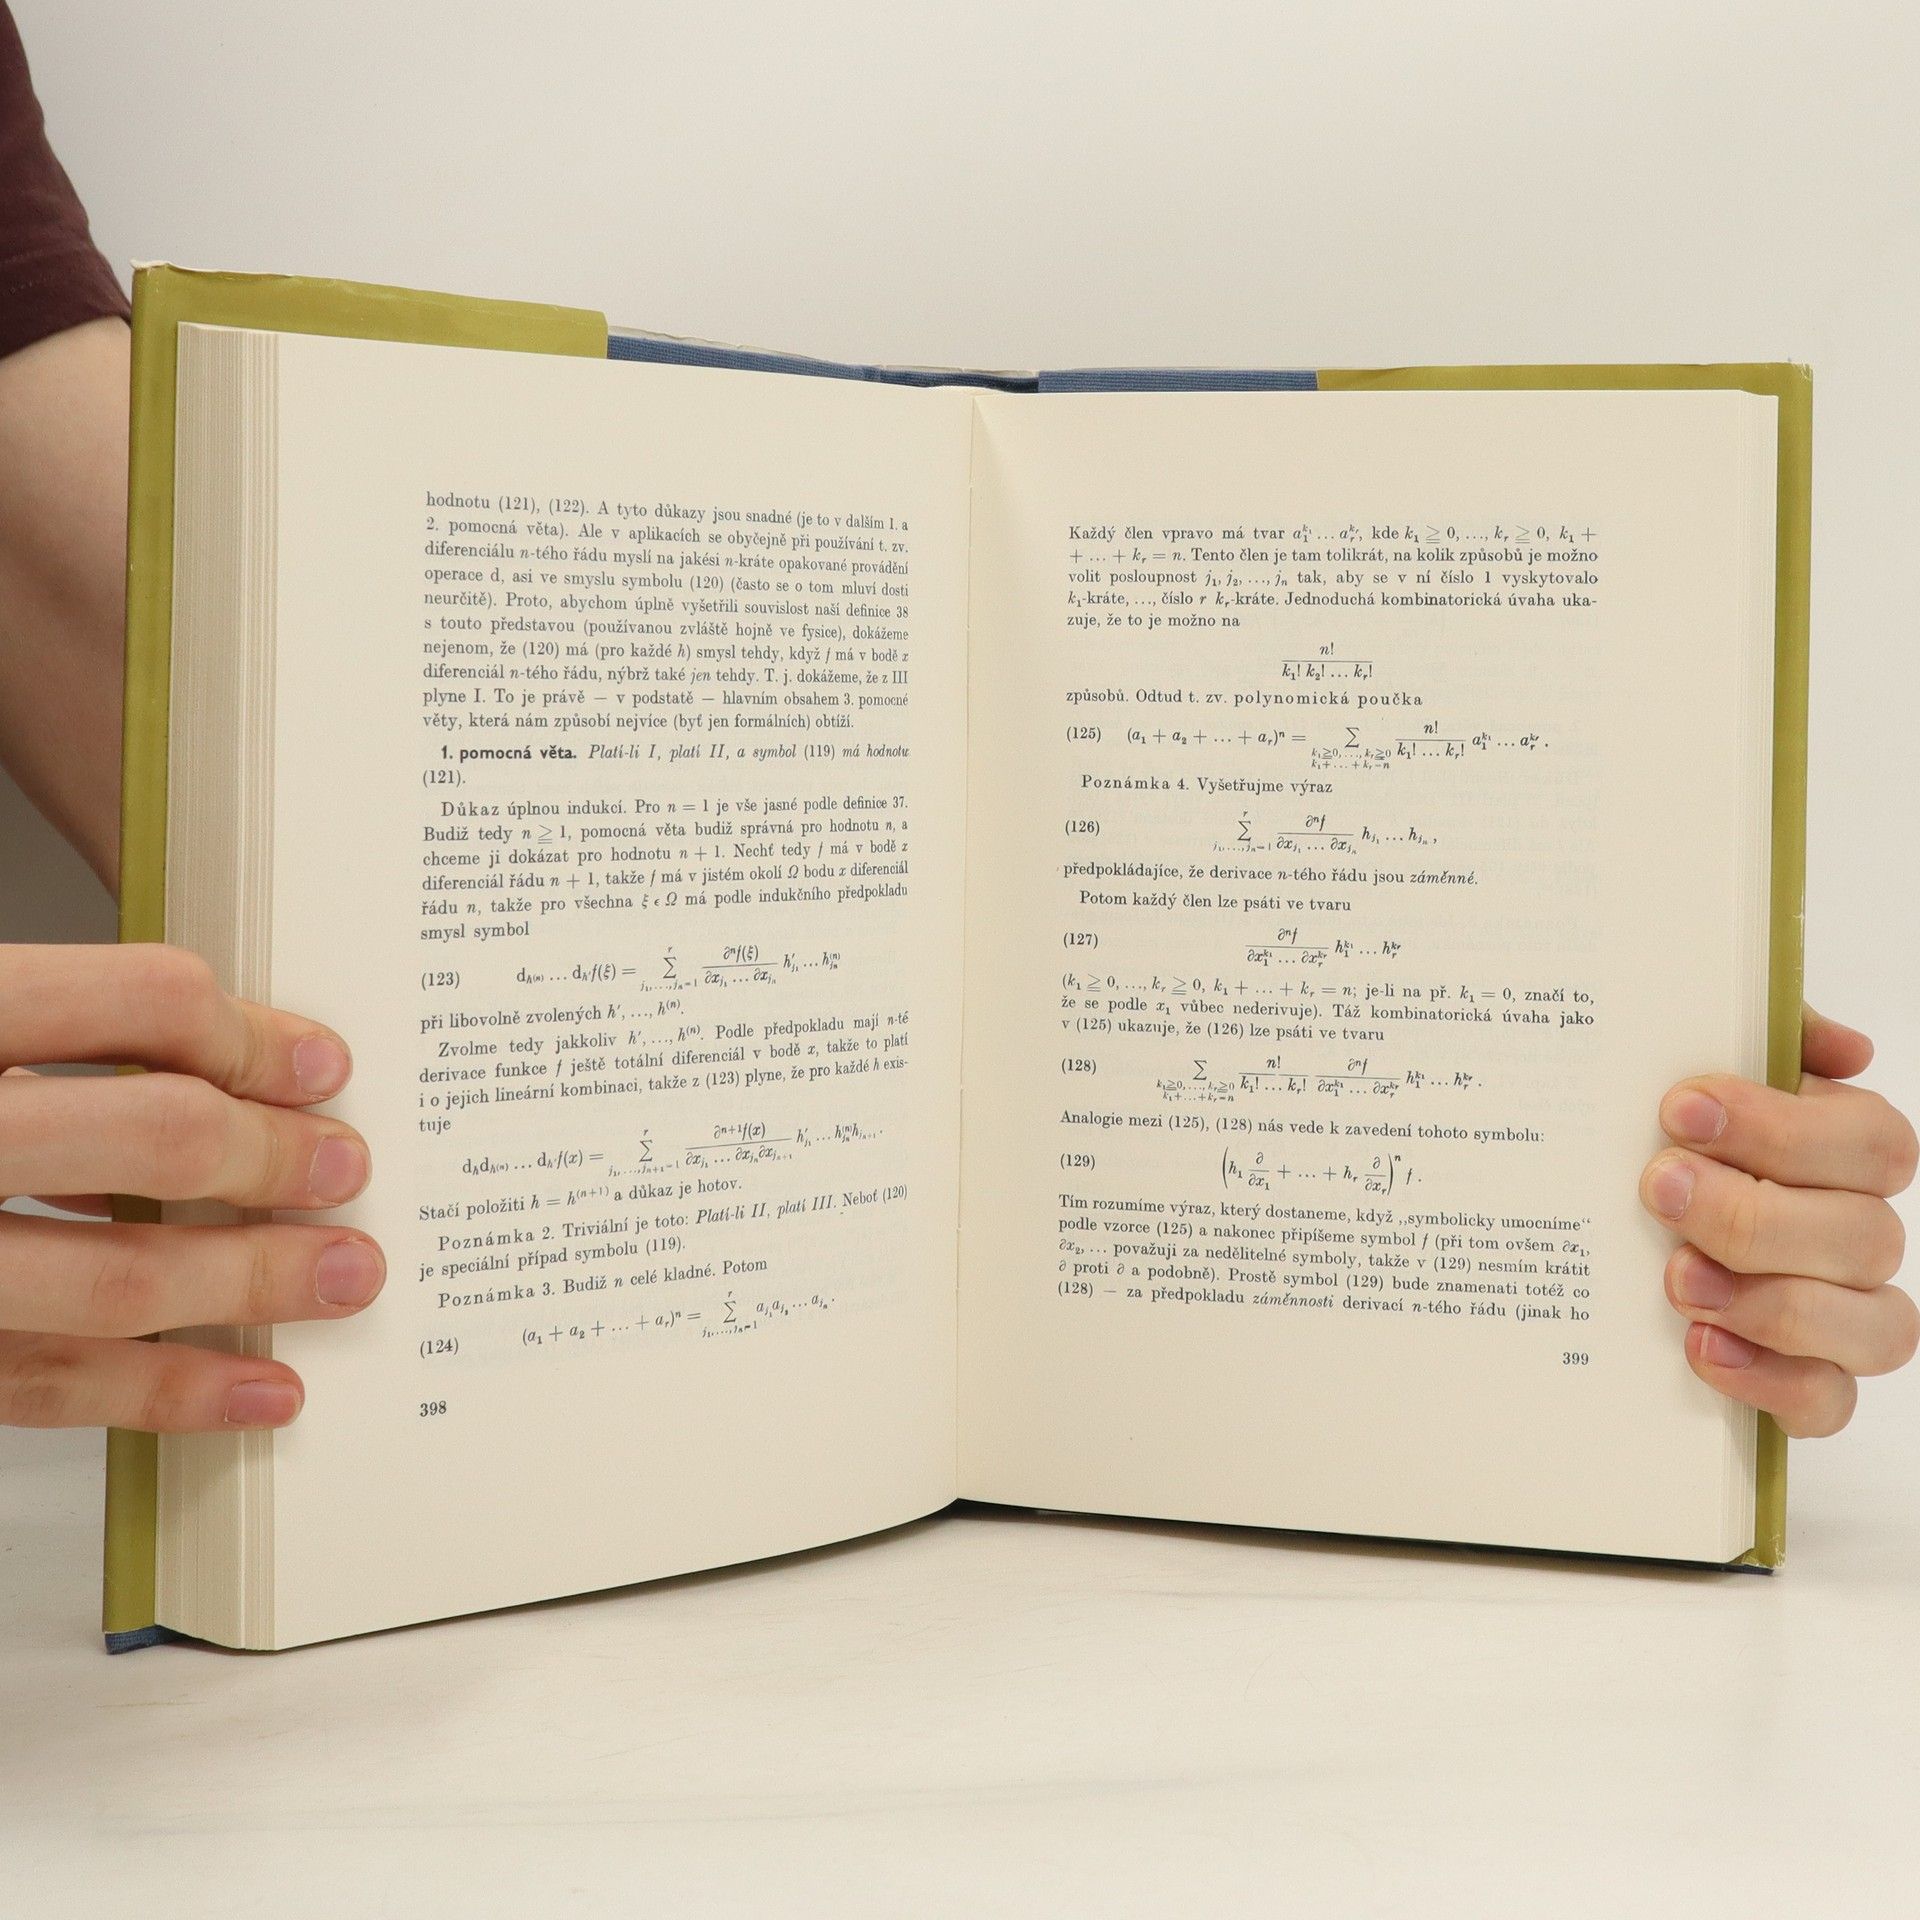 hodnotu (121), (122). A tyto důkazy jsou snadné (je to v dalším 1. a
2. pomocná věta). Ale v aplikacích se obyčejně při používání t. zv.
diferenciálu n-tého řádu myslí na jakési n-kráte opakované provádění
operace d, asi ve smyslu symbolu (120) (často se o tom mluví dosti
neurčitě). Proto, abychom úplně vyšetřili souvislost naší definice 38
s touto představou (používanou zvláště hojně ve fysice), dokážeme
nejenom, že (120) má (pro každé h) smysl tehdy, když f má v bodě x
diferenciál n-tého řádu, nýbrž také jen tehdy. T. j. dokážeme, že z III
plyne I. To je právě — v podstatě — hlavním obsahem 3. pomocné
věty, která nám způsobí nejvíce (byť jen formálních) obtíží.
1. pomocná věta. Platí-li I, platí II, a symbol (119) má hodnotu
(121).
Důkaz úplnou indukcí. Pro n = 1 je vše jasné podle definice 37.
Budiž tedy n ≧ 1, pomocná věta budiž správná pro hodnotu n, a
chceme ji dokázat pro hodnotu n + 1. Nechť tedy f má v bodě x
diferenciál řádu n + 1, takže f má v jistém okolí Ω bodu x diferenciál
řádu n, takže pro všechna ξ ϵ Ω má podle indukčního předpokladu
smysl symbol
(123) d_{h^{(n)}} … d_{h'}f(ξ) = \sum_{j_1,…,j_n=1}^{r} \frac{∂^n f(ξ)}{∂x_{j_1} … ∂x_{j_n}} h'_{j_1} … h^{(n)}_{j_n}
při libovolně zvolených h', …, h^{(n)}.
Zvolme tedy jakkoliv h', …, h^{(n)}. Podle předpokladu mají n-té
derivace funkce f ještě totální diferenciál v bodě x, takže to platí
i o jejich lineární kombinaci, takže z (123) plyne, že pro každé h exis-
tuje
d_h d_{h^{(n)}} … d_{h'}f(x) = \sum_{j_1,…,j_{n+1}=1}^{r} \frac{∂^{n+1} f(x)}{∂x_{j_1} … ∂x_{j_n} ∂x_{j_{n+1}}} h'_{j_1} … h^{(n)}_{j_n} h_{j_{n+1}}.
Stačí položiti h = h^{(n+1)} a důkaz je hotov.
Poznámka 2. Triviální je toto: Platí-li II, platí III. Neboť (120)
je speciální případ symbolu (119).
Poznámka 3. Budiž n celé kladné. Potom
(124) (a_1 + a_2 + … + a_r)^n = \sum_{j_1,…,j_n=1}^{r} a_{j_1} a_{j_2} … a_{j_n}.
398
Každý člen vpravo má tvar a_1^{k_1} … a_r^{k_r}, kde k_1 ≧ 0, …, k_r ≧ 0, k_1 +
+ … + k_r = n. Tento člen je tam tolikrát, na kolik způsobů je možno
volit posloupnost j_1, j_2, …, j_n tak, aby se v ní číslo 1 vyskytovalo
k_1-kráte, …, číslo r k_r-kráte. Jednoduchá kombinatorická úvaha uka-
zuje, že to je možno na
\frac{n!}{k_1! k_2! … k_r!}
způsobů. Odtud t. zv. polynomická poučka
(125) (a_1 + a_2 + … + a_r)^n = \sum_{k_1≧0, …, k_r≧0, k_1+…+k_r=n} \frac{n!}{k_1! … k_r!} a_1^{k_1} … a_r^{k_r}.
Poznámka 4. Vyšetřujme výraz
(126) \sum_{j_1,…,j_n=1}^{r} \frac{∂^n f}{∂x_{j_1} … ∂x_{j_n}} h_{j_1} … h_{j_n},
předpokládajíce, že derivace n-tého řádu jsou záměnné.
Potom každý člen lze psáti ve tvaru
(127) \frac{∂^n f}{∂x_1^{k_1} … ∂x_r^{k_r}} h_1^{k_1} … h_r^{k_r}
(k_1 ≧ 0, …, k_r ≧ 0, k_1 + … + k_r = n; je-li na př. k_1 = 0, značí to,
že se podle x_1 vůbec nederivuje). Táž kombinatorická úvaha jako
v (125) ukazuje, že (126) lze psáti ve tvaru
(128) \sum_{k_1≧0, …, k_r≧0, k_1+…+k_r=n} \frac{n!}{k_1! … k_r!} \frac{∂^n f}{∂x_1^{k_1} … ∂x_r^{k_r}} h_1^{k_1} … h_r^{k_r}.
Analogie mezi (125), (128) nás vede k zavedení tohoto symbolu:
(129) \left(h_1 \frac{∂}{∂x_1} + … + h_r \frac{∂}{∂x_r}\right)^n f.
Tím rozumíme výraz, který dostaneme, když „symbolicky umocníme“
podle vzorce (125) a nakonec připíšeme symbol f (při tom ovšem ∂x_1,
∂x_2, … považuji za nedělitelné symboly, takže v (129) nesmím krátit
∂ proti ∂ a podobně). Prostě symbol (129) bude znamenati totéž co
(128) — za předpokladu záměnnosti derivací n-tého řádu (jinak ho
399